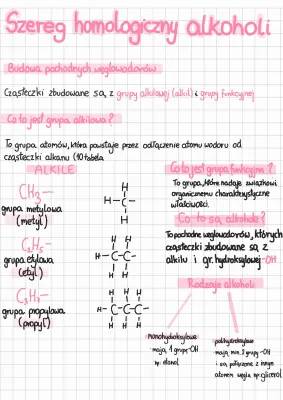 Szereg homologiczny alkoholi
Budowa pochodnych węglowodorów
Cząsteczki zbudowane są z grupy alkilowej (alkil) i grupy funkcyjnej
Co to jest grupa alkilowa?
To grupa atomów, która powstaje przez odłączenie atomu wodoru od
cząsteczki alkanu (10 tabela
ALKILE
CH₃—
grupa metylowa
(metyl)
H
H-C-
H
C₂H₅—
grupa etylowa
(etyl)
H H
H-C-C-
H H
C₃H₇—
grupa propylowa
(propyl)
H H H
H-C-C-C-
H H H
Co to jest grupa funkcyjna?
To grupa, które nadaje związkowi
organicznemu charakterystyczne
właściwości.
Co to są alkohole?
To pochodne węglowodorów, których
cząsteczki zbudowane są z
alkilu i gr. hydroksylowej -OH
Rodzaje alkoholi
monohydroksylowe
· mają 1 grupę -OH
np: etanol
polihydroksylowe
· mają min. 2 grupy -OH
i są połączone z innym
atomem węgla np: glicerol